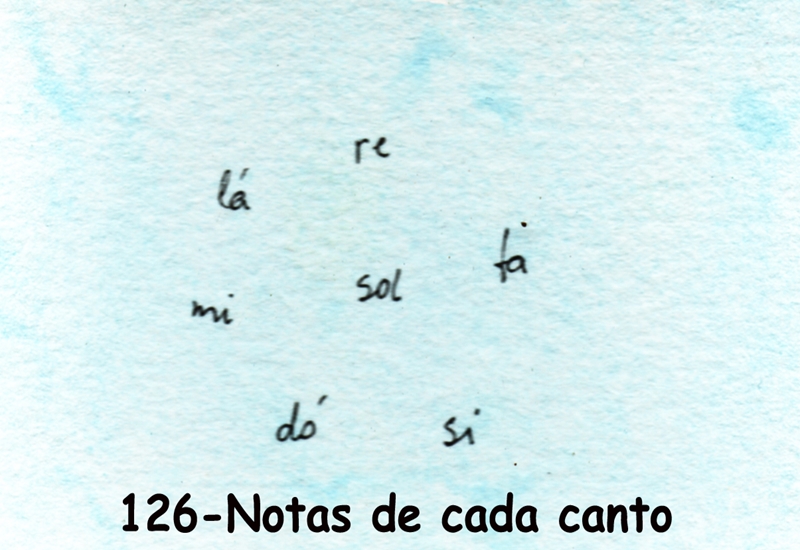 re
lá
fa
sol
mi
dó
si
126-Notas de cada canto